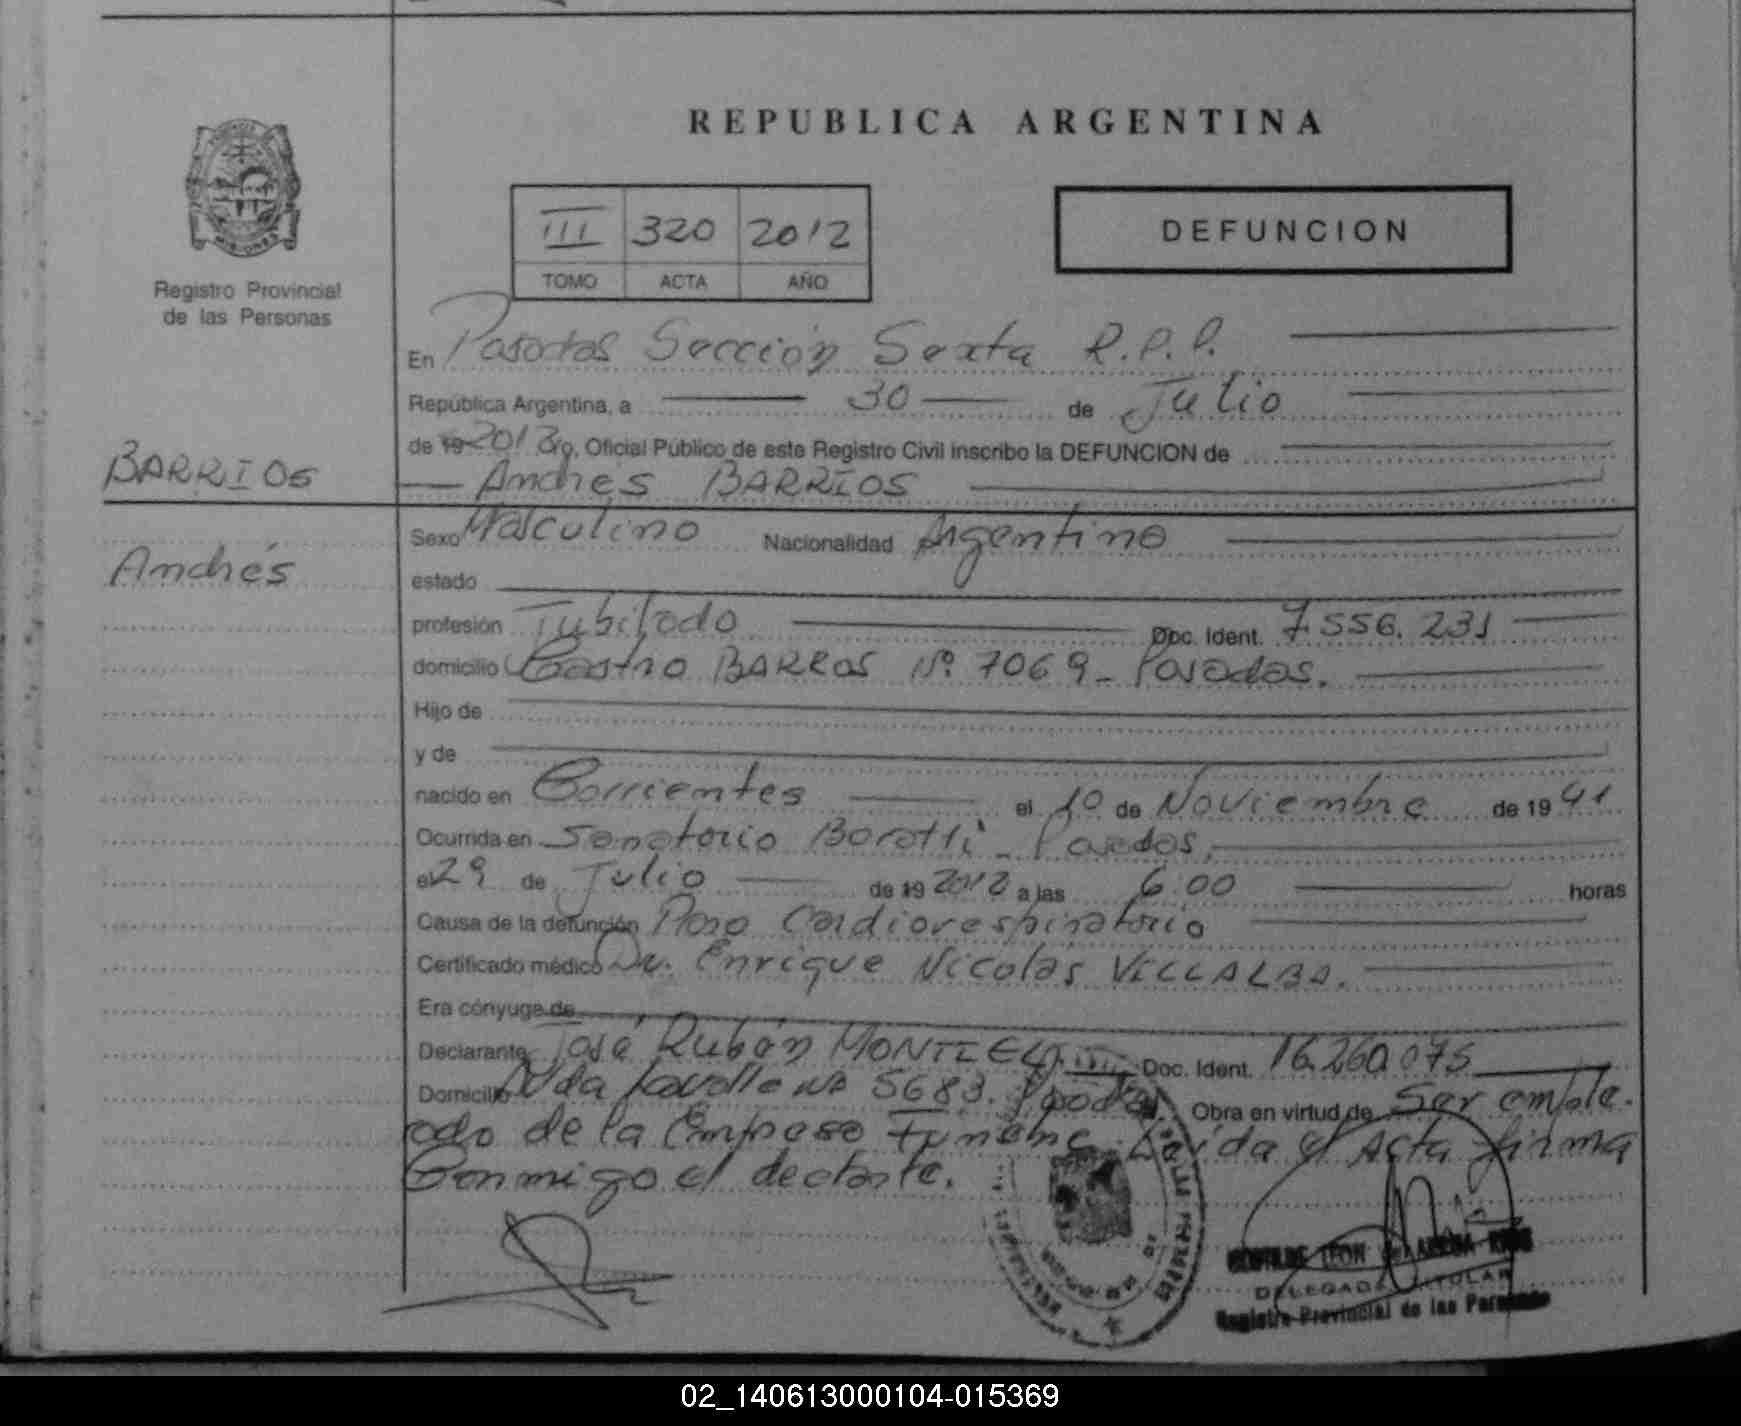 REPUBLICA ARGENTINA
MISIONES
Registro Provincial
de las Personas
III 320 2012
TOMO ACTA AÑO
DEFUNCION
En Posadas Sección Sexta R.P.P.
República Argentina, a 30 de Julio
de 19 2012 yo, Oficial Público de este Registro Civil inscribo la DEFUNCION de
BARRIOS
Andres BARRIOS
Andrés
Sexo Masculino Nacionalidad Argentino
estado
profesión Jubilado Doc. Ident. 7.556.231
domicilio Castro BARROS Nº 7069 - Posadas.
Hijo de
y de
nacido en Corrientes el 10 de Noviembre de 1941
Ocurrida en Sanatorio Boratti - Posadas.
el 29 de Julio de 19 2012 a las 6:00 horas
Causa de la defunción Paro Cardiorespiratorio
Certificado médico Dr. Enrique Nicolás VILLALBA.
Era cónyuge de
Declarante José Rubén MONTIEL Doc. Ident. 16.260.075
Domicilio Avda Lavalle Nº 5683. Posadas. Obra en virtud de Ser emple-
ado de la Empresa Funebre. Leída el Acta firma
Conmigo el declarante.
LEON de
DELEGADA TITULAR
Registro Provincial de las Personas
02_140613000104-015369